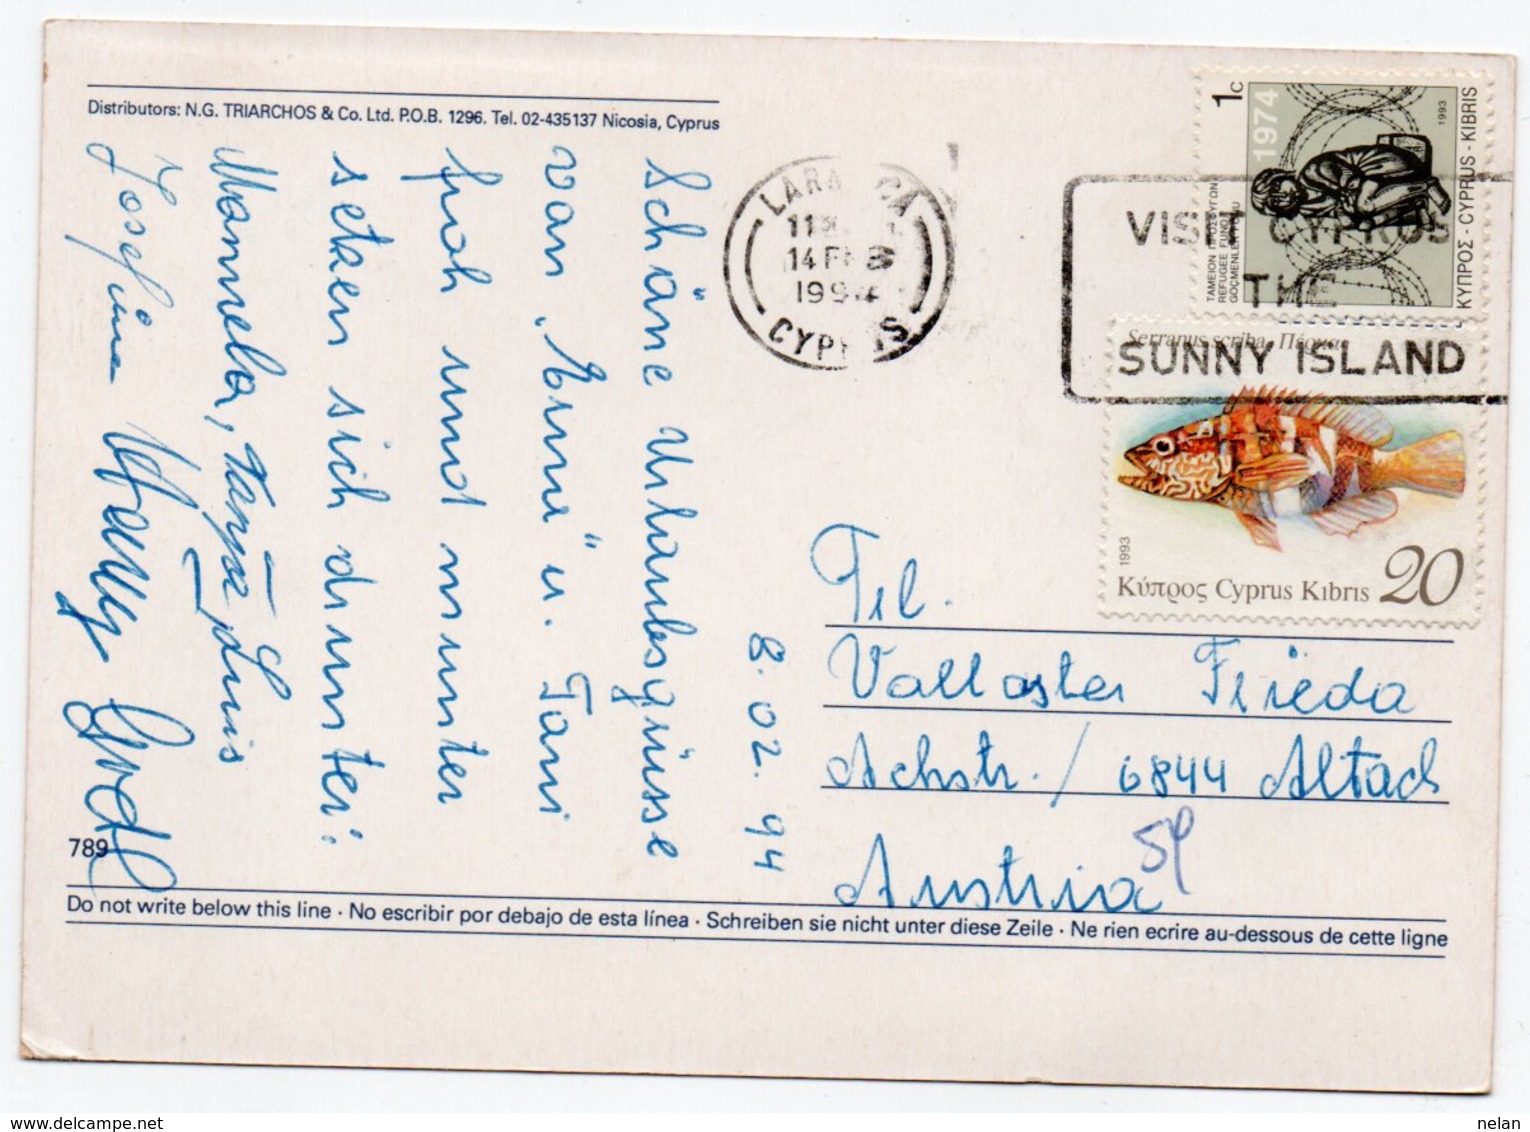 Distributors: N.G. TRIARCHOS & Co. Ltd. P.O.B. 1296. Tel. 02-435137 Nicosia, Cyprus
Schöne Urlaubsgrüsse
von „Emmi" u. Toni
froh und munter
setzen sich drunter:
Manuela, Tanja, Luis
Josefina
8.02.94
LARNACA
14 FEB
1994
CYPRUS
VISIT CYPRUS
THE
SUNNY ISLAND
1c
1974
1993
ΤΑΜΕΙΟΝ ΠΡΟΣΦΥΓΩΝ
REFUGEE FUND
GÖÇMENLER FONU
ΚΥΠΡΟΣ - CYPRUS - KIBRIS
Serranus scriba, Πέρκα
1993
Κύπρος Cyprus Kıbrıs 20
Frl.
Vallaster Frieda
Achstr. / 6844 Altach
Austria
789
Do not write below this line · No escribir por debajo de esta línea · Schreiben sie nicht unter diese Zeile · Ne rien ecrire au-dessous de cette ligne
nelan